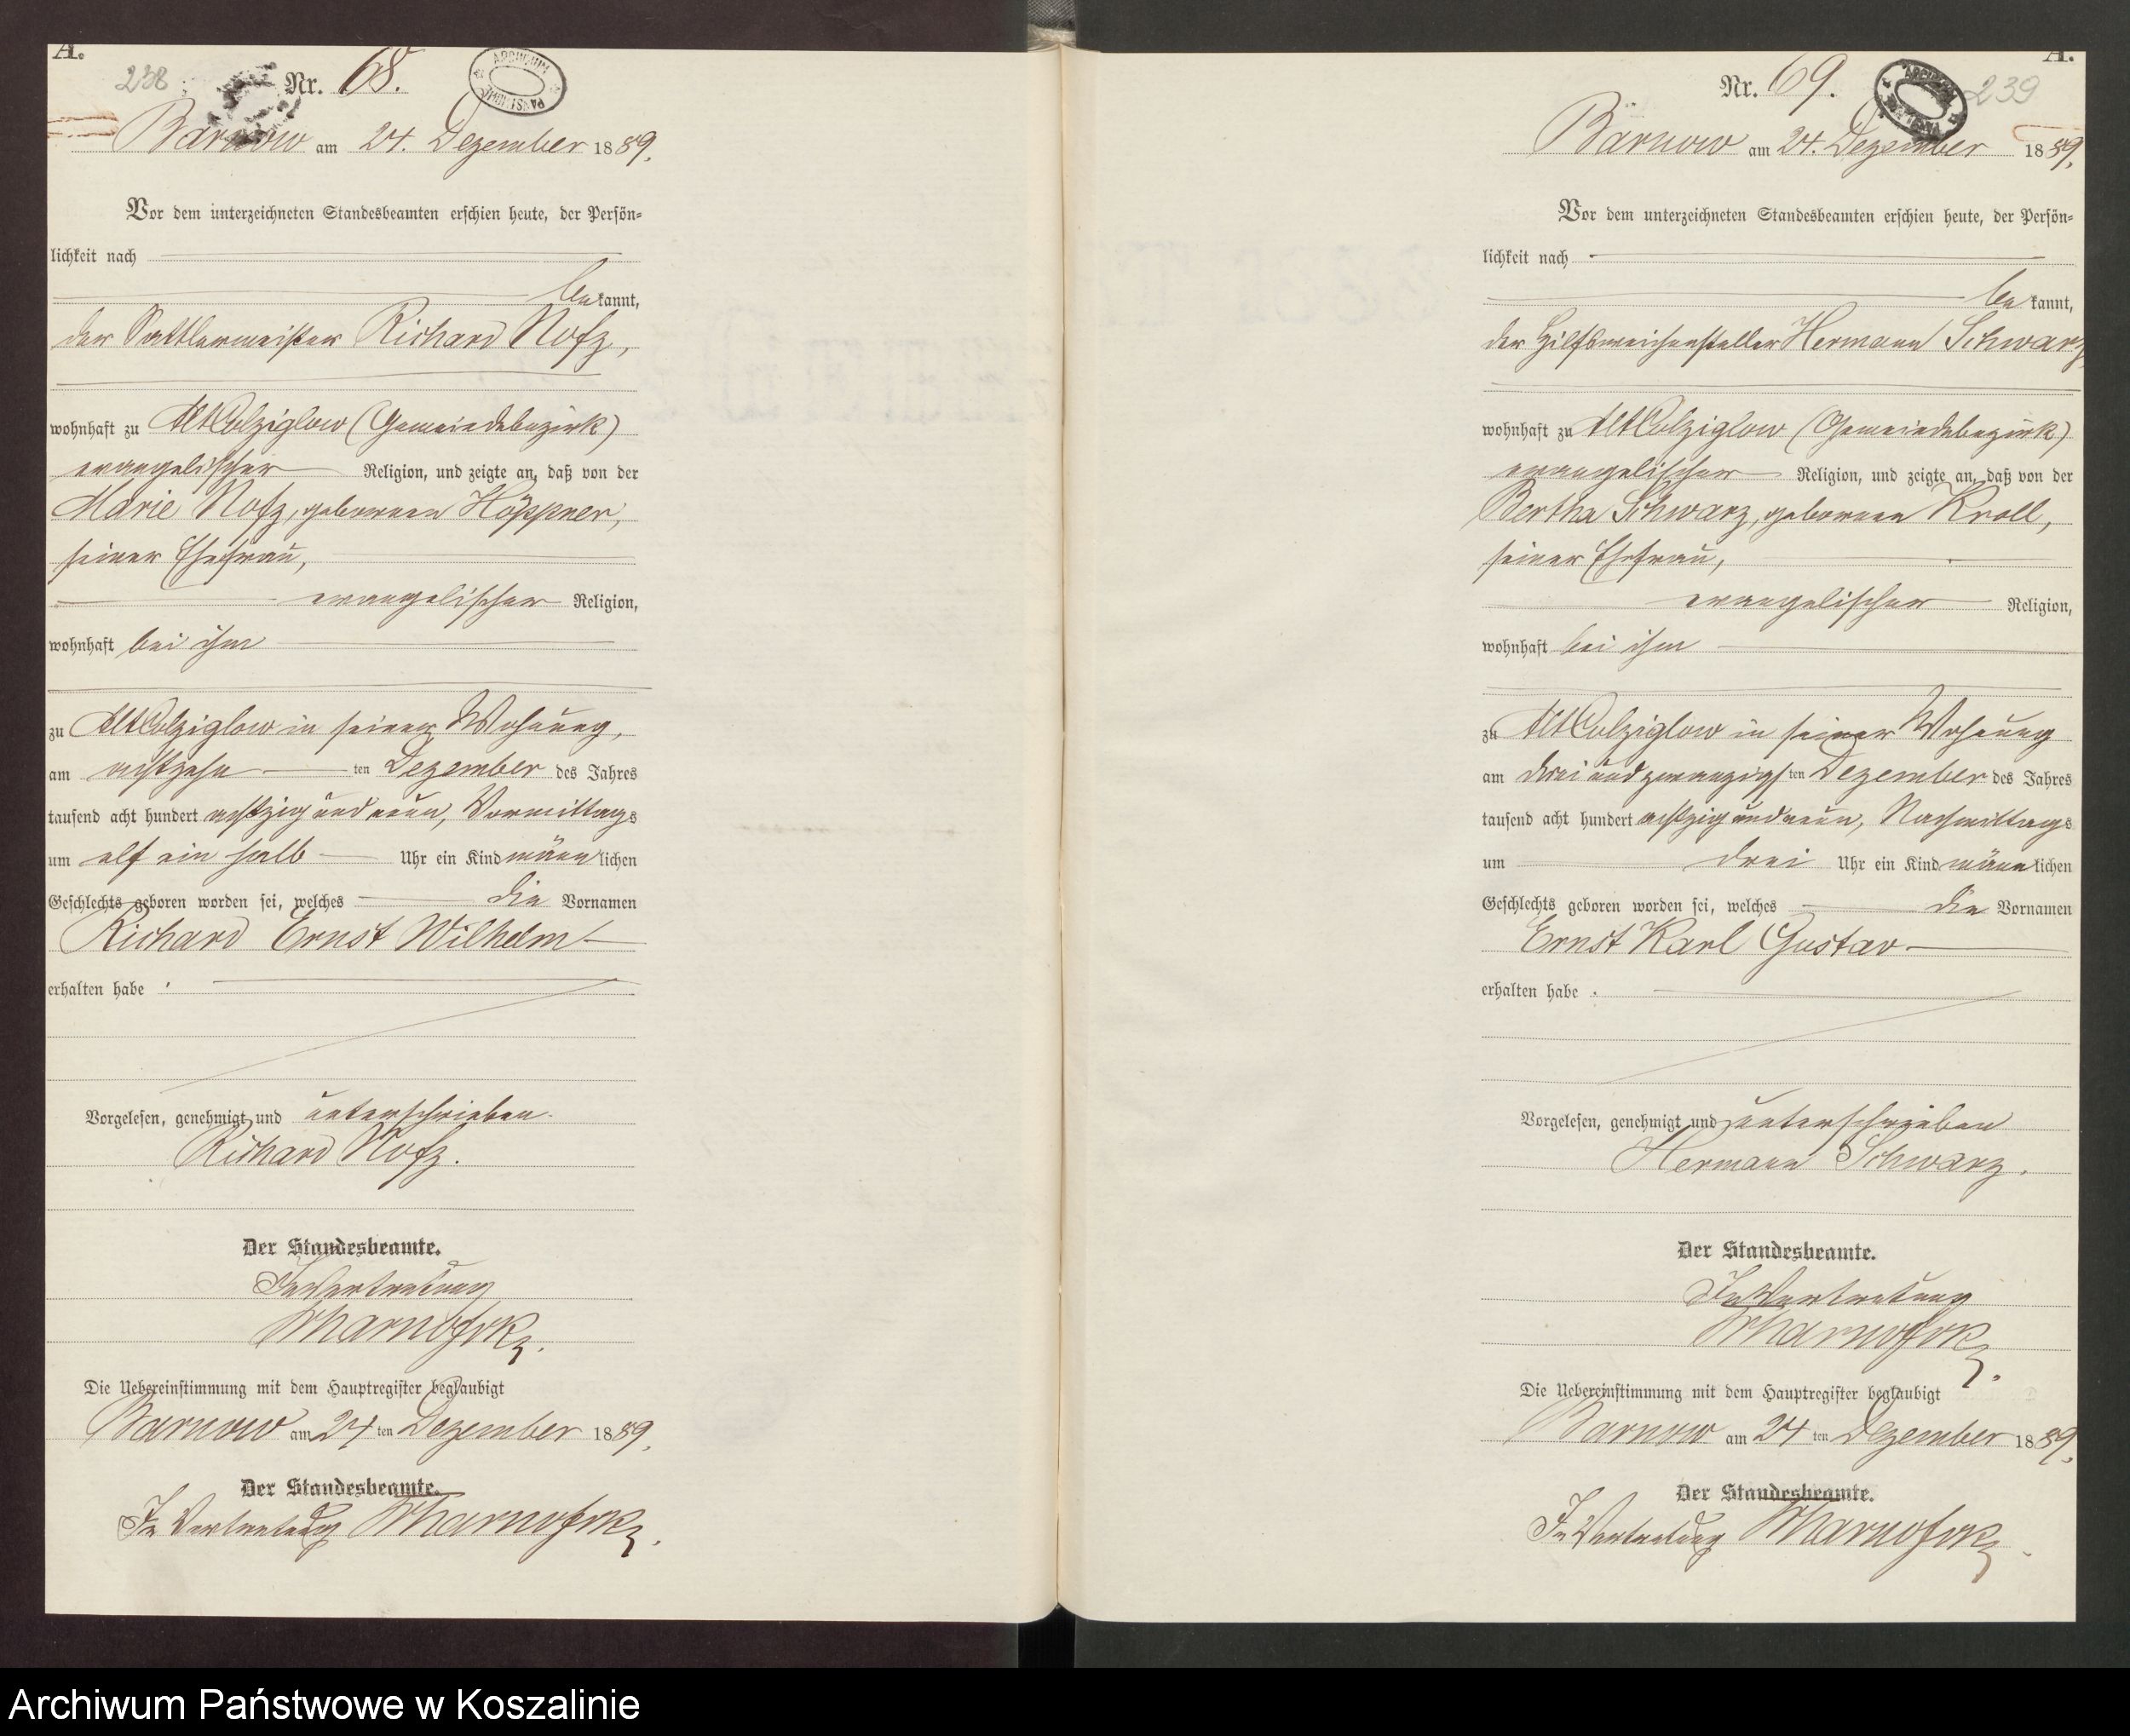 A.
238
Nr. 68.
ARCHIWUM PAŃSTWOWE
Barnow am 24. Dezember 1889.
Vor dem unterzeichneten Standesbeamten erschien heute, der Persön-
lichkeit nach
bekannt,
der Sattlermeister Richard Nofz,
wohnhaft zu Alt Colziglow (Gemeindebezirk)
evangelischer Religion, und zeigte an, daß von der
Marie Nofz, geborenen Höppner,
seiner Ehefrau,
evangelischer Religion,
wohnhaft bei ihm
zu Alt Colziglow in seiner Wohnung,
am achtzehn ten Dezember des Jahres
tausend acht hundert achtzig und neun, Vormittags
um elf ein halb Uhr ein Kind männlichen
Geschlechts geboren worden sei, welches die Vornamen
Richard Ernst Wilhelm
erhalten habe
Vorgelesen, genehmigt und unterschrieben.
Richard Nofz.
Der Standesbeamte.
In Vertretung
Die Uebereinstimmung mit dem Hauptregister beglaubigt
Barnow am 24 ten Dezember 1889.
Der Standesbeamte.
In Vertretung
A.
Nr. 69.
239
Barnow am 24. Dezember 1889.
Vor dem unterzeichneten Standesbeamten erschien heute, der Persön-
lichkeit nach
bekannt,
der Hilfsweichensteller Hermann Schwarz,
wohnhaft zu Alt Colziglow (Gemeindebezirk)
evangelischer Religion, und zeigte an, daß von der
Bertha Schwarz, geborenen Kroll,
seiner Ehefrau,
evangelischer Religion,
wohnhaft bei ihm
zu Alt Colziglow in seiner Wohnung
am drei und zwanzigsten Dezember des Jahres
tausend acht hundert achtzig und neun, Nachmittags
um drei Uhr ein Kind männlichen
Geschlechts geboren worden sei, welches die Vornamen
Ernst Karl Gustav
erhalten habe.
Vorgelesen, genehmigt und unterschrieben
Hermann Schwarz.
Der Standesbeamte.
In Vertretung
Die Uebereinstimmung mit dem Hauptregister beglaubigt
Barnow am 24 ten Dezember 1889.
Der Standesbeamte.
In Vertretung
Archiwum Państwowe w Koszalinie